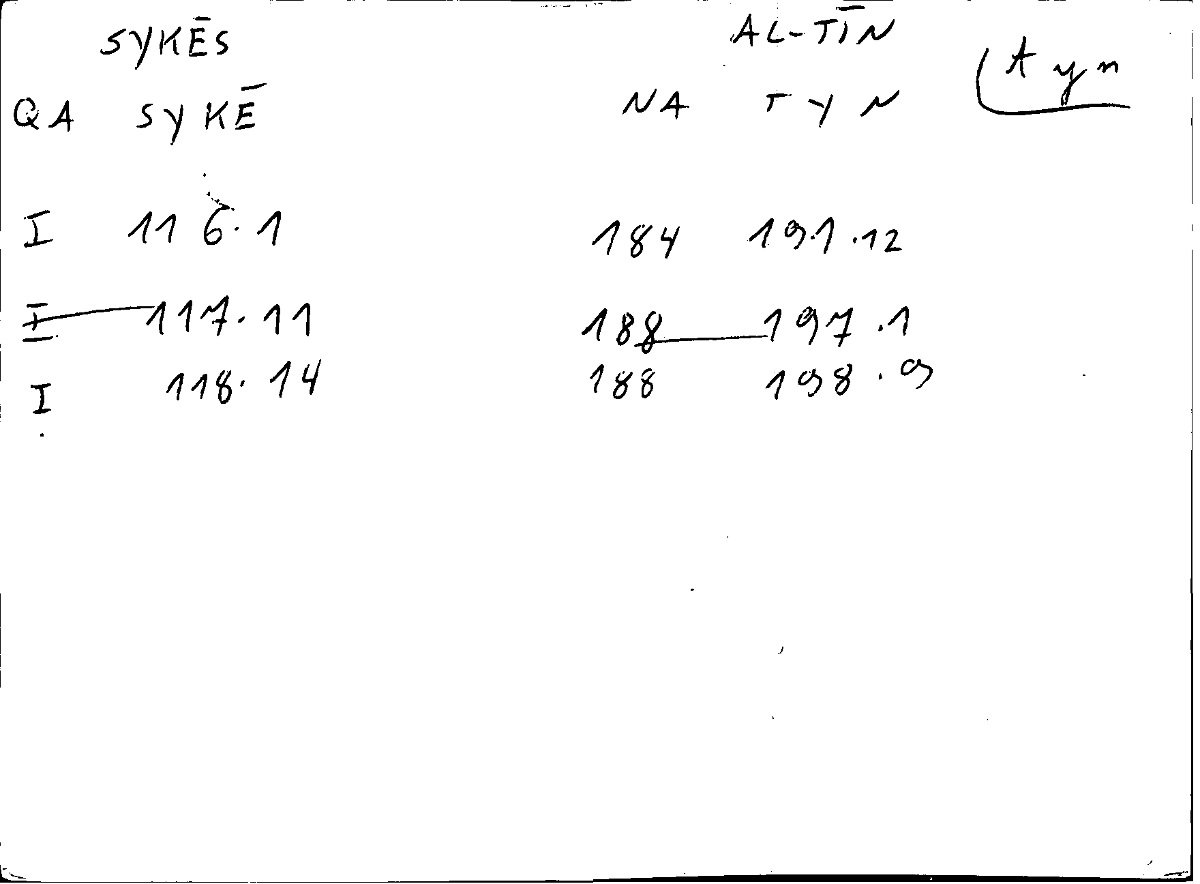 SYKĒS AL-TĪN
QA SYKĒ NA TYN tyn
I 116.1 184 191.12
I 117.11 188 197.1
I 118.14 188 198.9